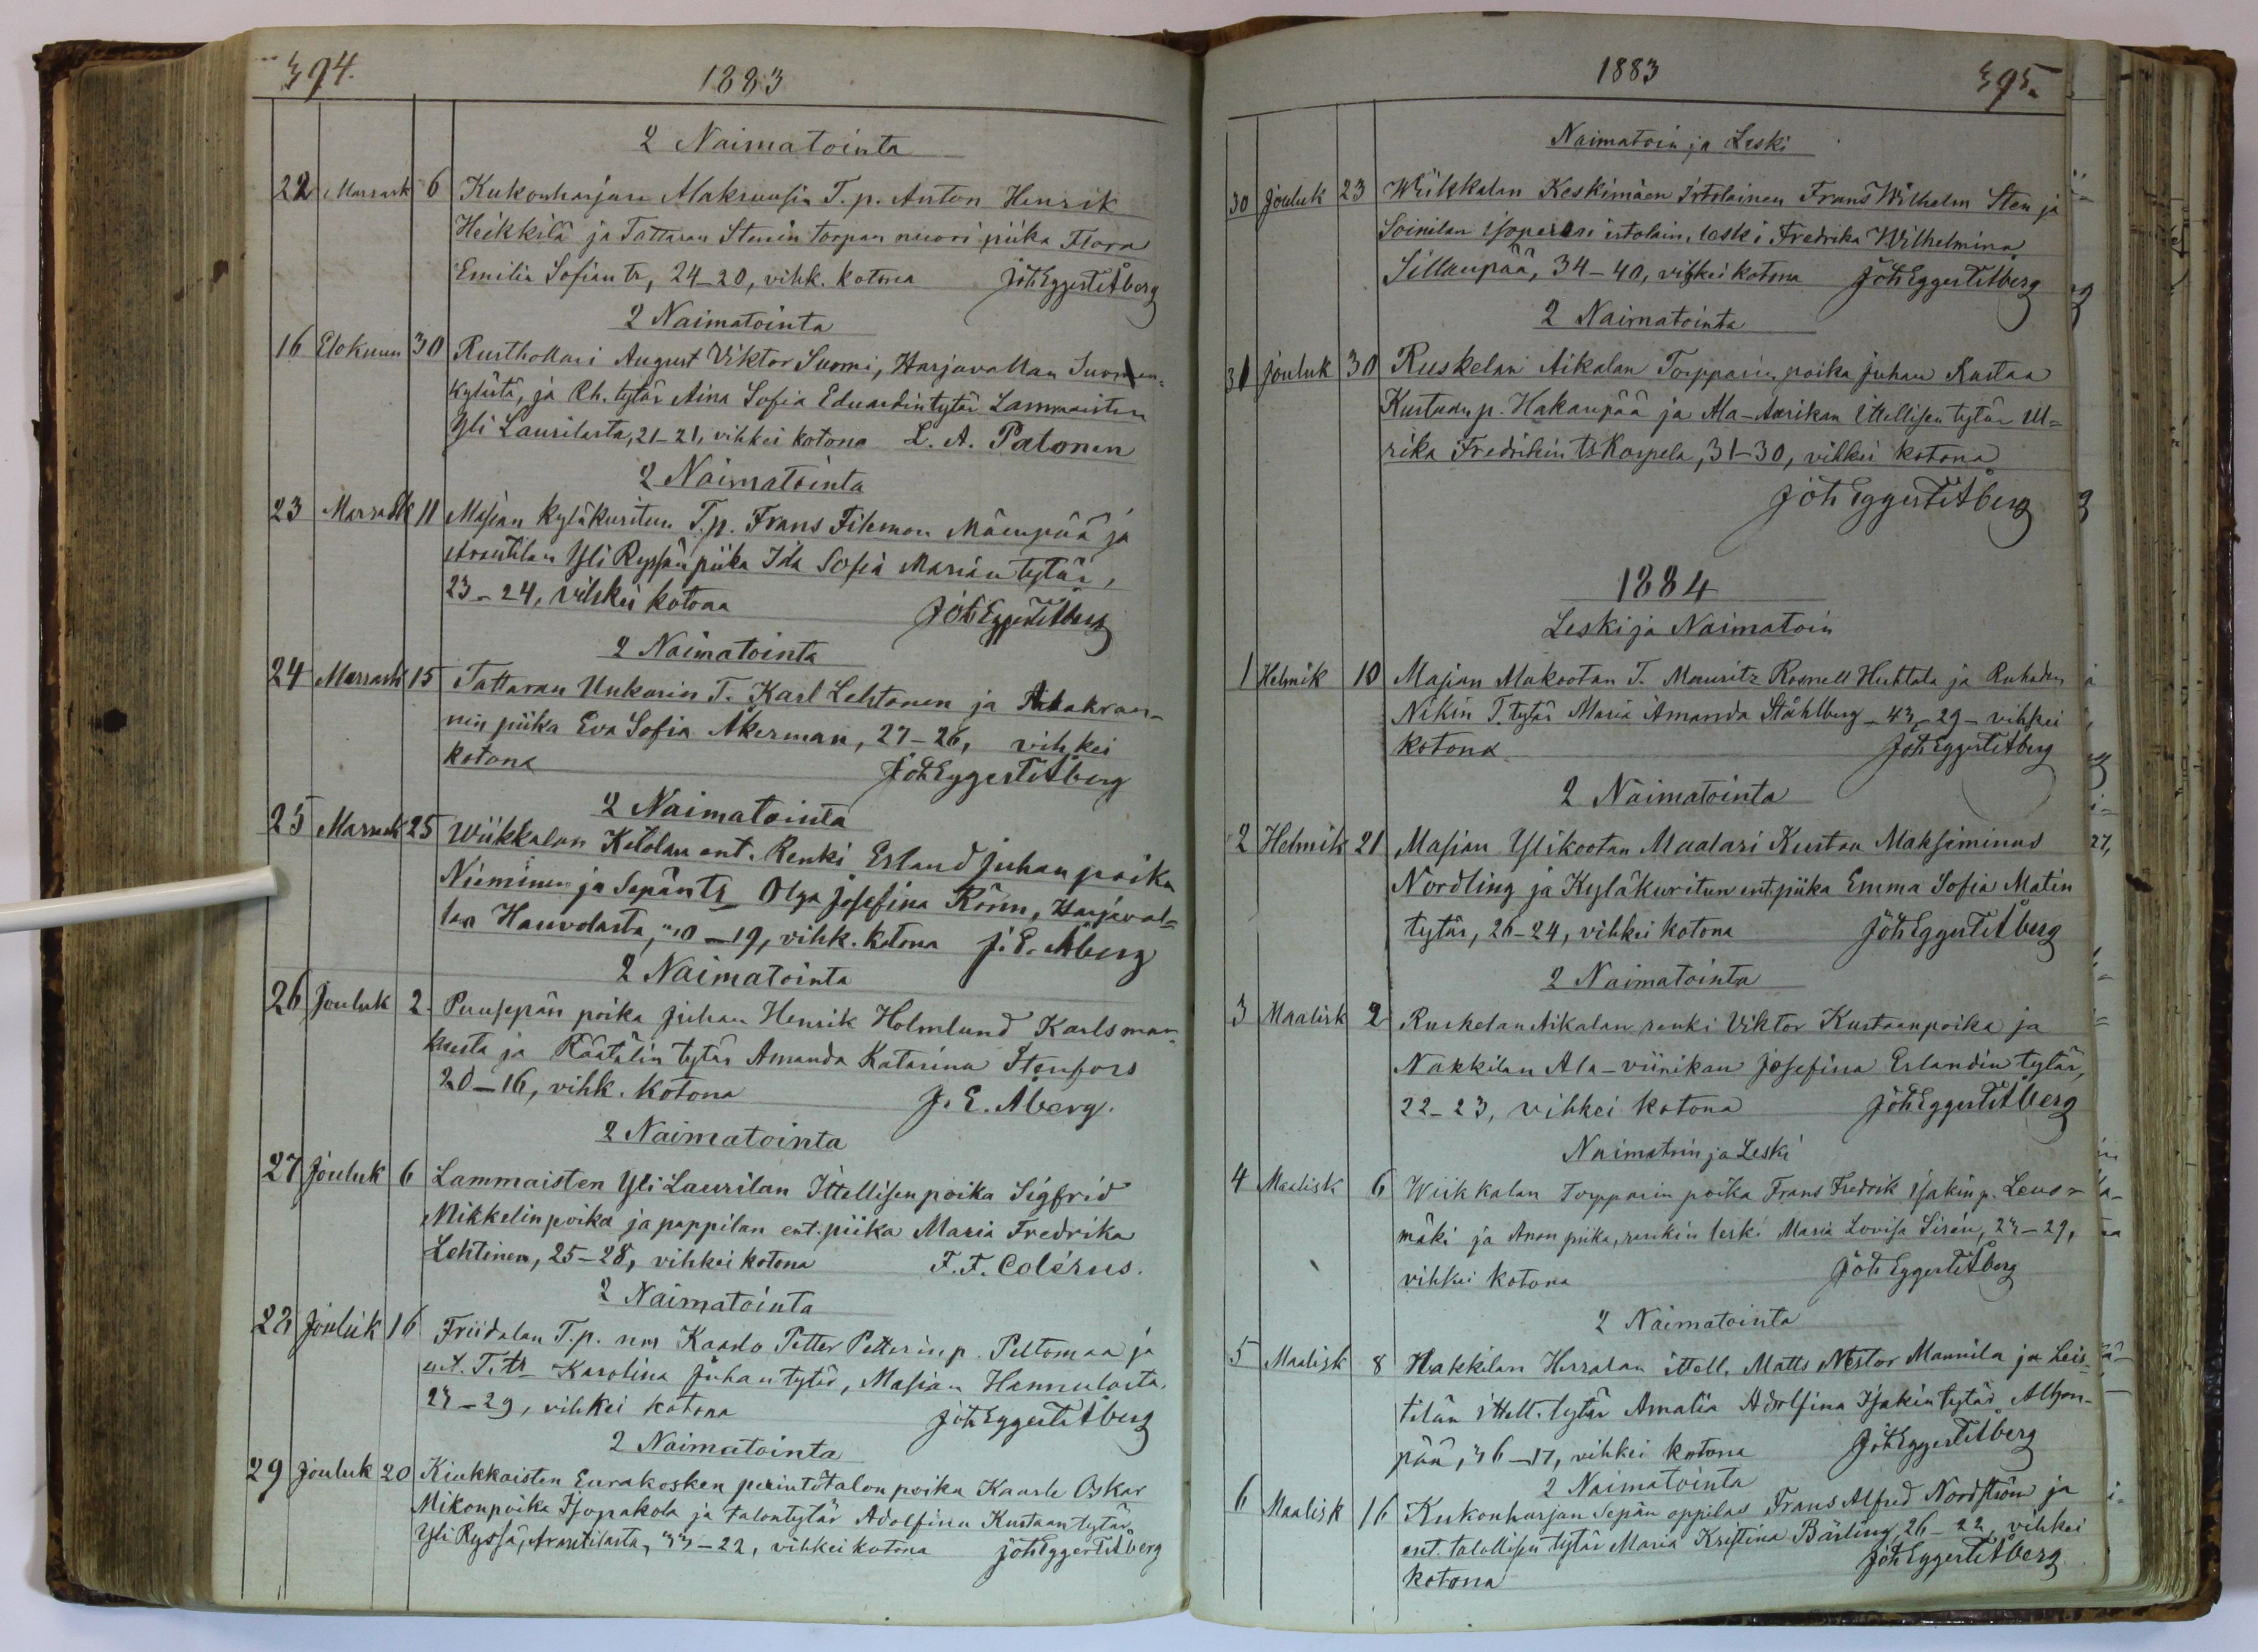 394.
1883
2 Naimatointa
22 Marrask 6 Kukonharjan Makruusin T. p. Anton Henrik
Heikkilä ja Tattaran Stenin torpan nuori piika Flora
Emilia Sofian tr, 24-20, vihk. kotona Joh Eggert Åberg
2 Naimatointa
16 Elokuun 30 Rusthollari August Viktor Suomi, Harjavallan Suomen-
kylästä, ja Rh. tytär Aina Sofia Eduardintytär Lammaisten
Yli Laurilasta, 21-21, vihkei kotona L. A. Palonen
2 Naimatointa
23 Marrask 11 Masian kyläkuritun T. p. Frans Filemon Mäenpää ja
Arantilan Yli Ryssän piika Ida Sofia Marian tytär,
23-24, vihkei kotona Joh Eggert Åberg
2 Naimatointa
24 Marrask 15 Tattaran Unkarin T. Karl Lehtonen ja
nin piika Eva Sofia Åkerman, 27-26, vihkei
kotona Joh Eggert Åberg
2 Naimatointa
25 Marrask 25 Wiikkalan Ketolan ent. Renki Erland Juhan poika
Nieminen ja Sepän tr Olga Josefina Rönn, Harjaval=
lan Hauvolasta, -19, vihk. kotona J. E. Åberg
2 Naimatointa
26 Jouluk 2. Puusepän poika Juhan Henrik Holmlund Karlsmar-
kusta ja Räätälin tytär Amanda Katarina Stenfors
20-16, vihk. kotona J. E. Åberg.
2 Naimatointa
27 Jouluk 6 Lammaisten Yli Laurilan Ittellisen poika Sigfrid
Mikkelin poika ja pappilan ent. piika Maria Fredrika
Lehtinen, 25-28, vihkei kotona F. F. Colérus.
2 Naimatointa
28 Jouluk 16 Friidalan T. p. Kaarlo Petter Petterin p. Peltomaa ja
ent. T. tr Karolina Juhan tytär, Masian Hannulasta,
23-29, vihkei kotona Joh Eggert Åberg
2 Naimatointa
29 Jouluk 20 Kiukkaisten Eurakosken perintötalon poika Kaarle Oskar
Mikonpoika Isopakola ja talontytär Adolfina Kustaan tytär
Yli Ryssä, Arantilasta, 33-22, vihkei kotona Joh Eggert Åberg
1883
395.
Naimatoin ja Leski
30 Jouluk 23 Wiikkalan Keskimäen irtolainen Frans Wilhelm Sten ja
Soinilan irtolain. leski Fredrika Wilhelmina
Sillanpää, 34-40, vihkei kotona Joh Eggert Åberg
2 Naimatointa
31 Jouluk 30 Ruskelan Aikalan Torpparin poika Juhan Kustaa
Kustaan p. Hakanpää ja Ala-Aarikan Ittellisen tytär Ul=
rika Fredrikin tr Korpela, 31-30, vihkei kotona
Joh Eggert Åberg
1884
Leski ja Naimatoin
1 Helmik 10 Masian Alakootan T. Mauritz Rosnell Huhtala ja Ruhaden
Nikin T. tytär Maria Amanda Ståhlberg - 43-29 - vihkei
kotona Joh Eggert Åberg
2 Naimatointa
2 Helmik 21 Masian Ylikootan Maalari Kustaa Maksiminus
Nordling ja Kyläkuritun ent. piika Emma Sofia Matin
tytär, 26-24, vihkei kotona Joh Eggert Åberg
2 Naimatointa
3 Maalisk 2 Ruskelan Aikalan renki Viktor Kustaanpoika ja
Nakkilan Ala-viinikan Josefina Erlandin tytär,
22-23, vihkei kotona Joh Eggert Åberg
Naimatoin ja Leski
4 Maalisk 6 Wiikkalan Torpparin poika Frans Fredrik Isakin p. Leus=
mäki ja Anon piika, renkin leski Maria Lovisa Sirén, 23-29,
vihkei kotona Joh Eggert Åberg
2 Naimatointa
5 Maalisk 8 Nakkilan Herralan ittell. Matts Nestor Mannila ja Leis-
tilän ittell. tytär Amalia Adolfina Isakin tytär
pää, 36-17, vihkei kotona Joh Eggert Åberg
2 Naimatointa
6 Maalisk 16 Kukonharjan Sepän oppilas Frans Alfred Nordström ja
ent. talollisen tytär Maria Kristina Bärling, 26-22, vihkei
kotona Joh Eggert Åberg